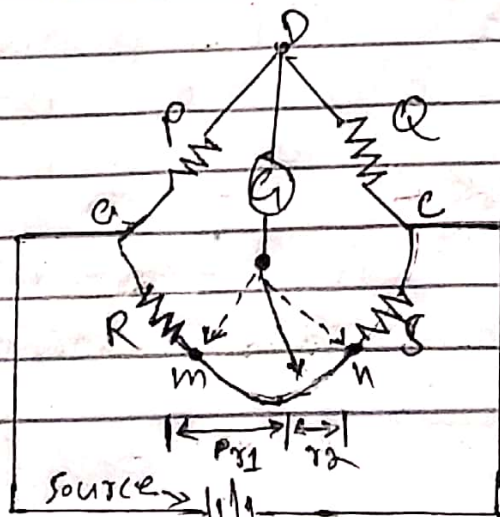 D
P
Q
G
a
C
R
S
m
n
r1
r2
Source